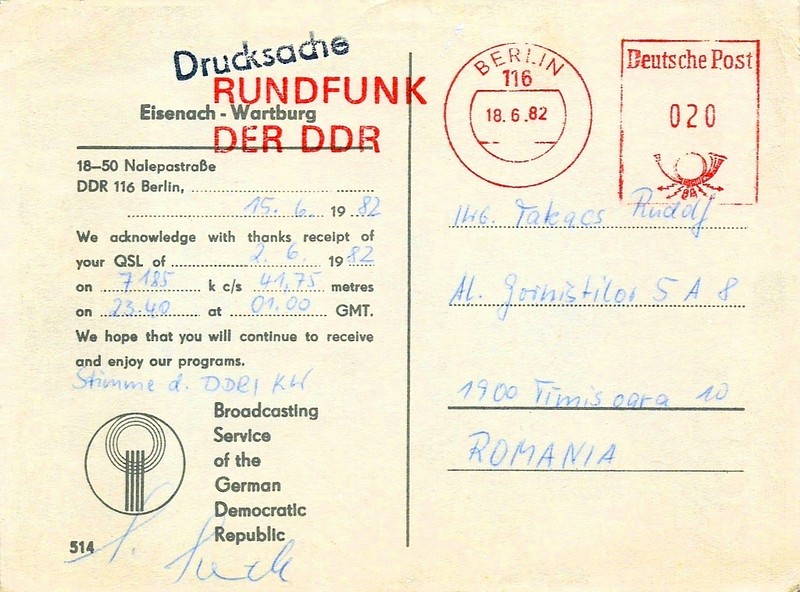 Drucksache
RUNDFUNK
Eisenach - Wartburg
DER DDR
18–50 Nalepastraße
DDR 116 Berlin,
15. 6. 1982
We acknowledge with thanks receipt of
your QSL of 2. 6. 1982
on 7185 k c/s 41,75 metres
on 23.40 at 01.00 GMT.
We hope that you will continue to receive
and enjoy our programs.
Stimme d. DDR/KW
Broadcasting
Service
of the
German
Democratic
Republic
514
BERLIN
116
18.6.82
Deutsche Post
020
Ing. Takacs Rudolf
Al. Gornistilor 5 A 8
1900 Timisoara 10
ROMANIA